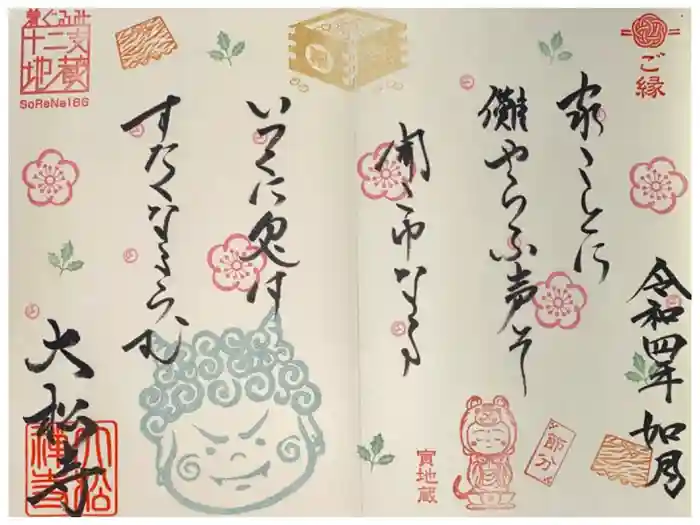 ご縁
令和四年 如月
家ことに
儺やらふ声そ
聞ゆなる
いつくに鬼は
すたくなるらむ
大松寺
大松禅寺
節分
寅地蔵
着ぐるみ
十二支
地蔵